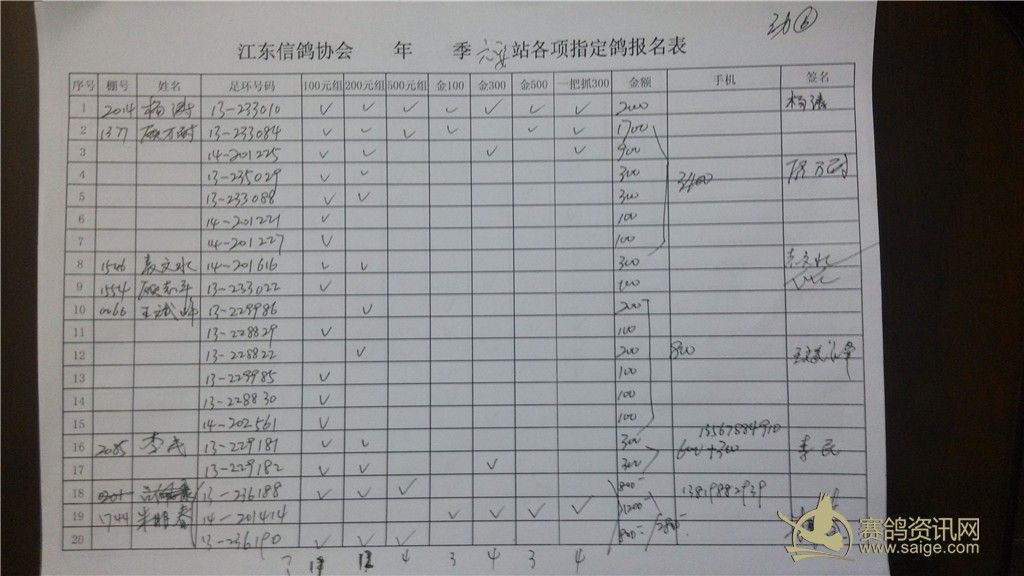 江东信鸽协会 年 季 站各项指定鸽报名表
序号 棚号 姓名 足环号码 100元组 200元组 500元组 金100 金300 金500 一把抓300 金额 手机 签名
1 2014 杨涛 13-233010 ✓ ✓ ✓ ✓ ✓ ✓ ✓ 2000 杨涛
2 1377 13-233084 ✓ ✓ ✓ ✓ ✓ ✓ 1700
3 14-201225 ✓ ✓ ✓ ✓ 900
4 13-235029 ✓ ✓ 300
5 13-233088 ✓ ✓ 300
6 14-201221 ✓ 100
7 14-201227 ✓ 100
8 14-201616 ✓ ✓ 300
9 1554 13-233022 ✓ 100
10 13-229986 ✓ 200
11 13-228829 ✓ 100
12 13-228822 ✓ 200 800
13 13-229985 ✓ 100
14 13-228830 ✓ 100
15 14-202561 ✓ 100
13567884910
16 2085 李民 13-229181 ✓ ✓ 300 600+300 李民
17 13-229182 ✓ ✓ ✓
18 13-236188 ✓ ✓ ✓ 800- 13819882939
19 1744 14-201414 ✓ ✓ ✓ ✓
20 13-236190 ✓ ✓ ✓ 800-
12 4 3 4 3 4
赛鸽资讯网
www.saige.com